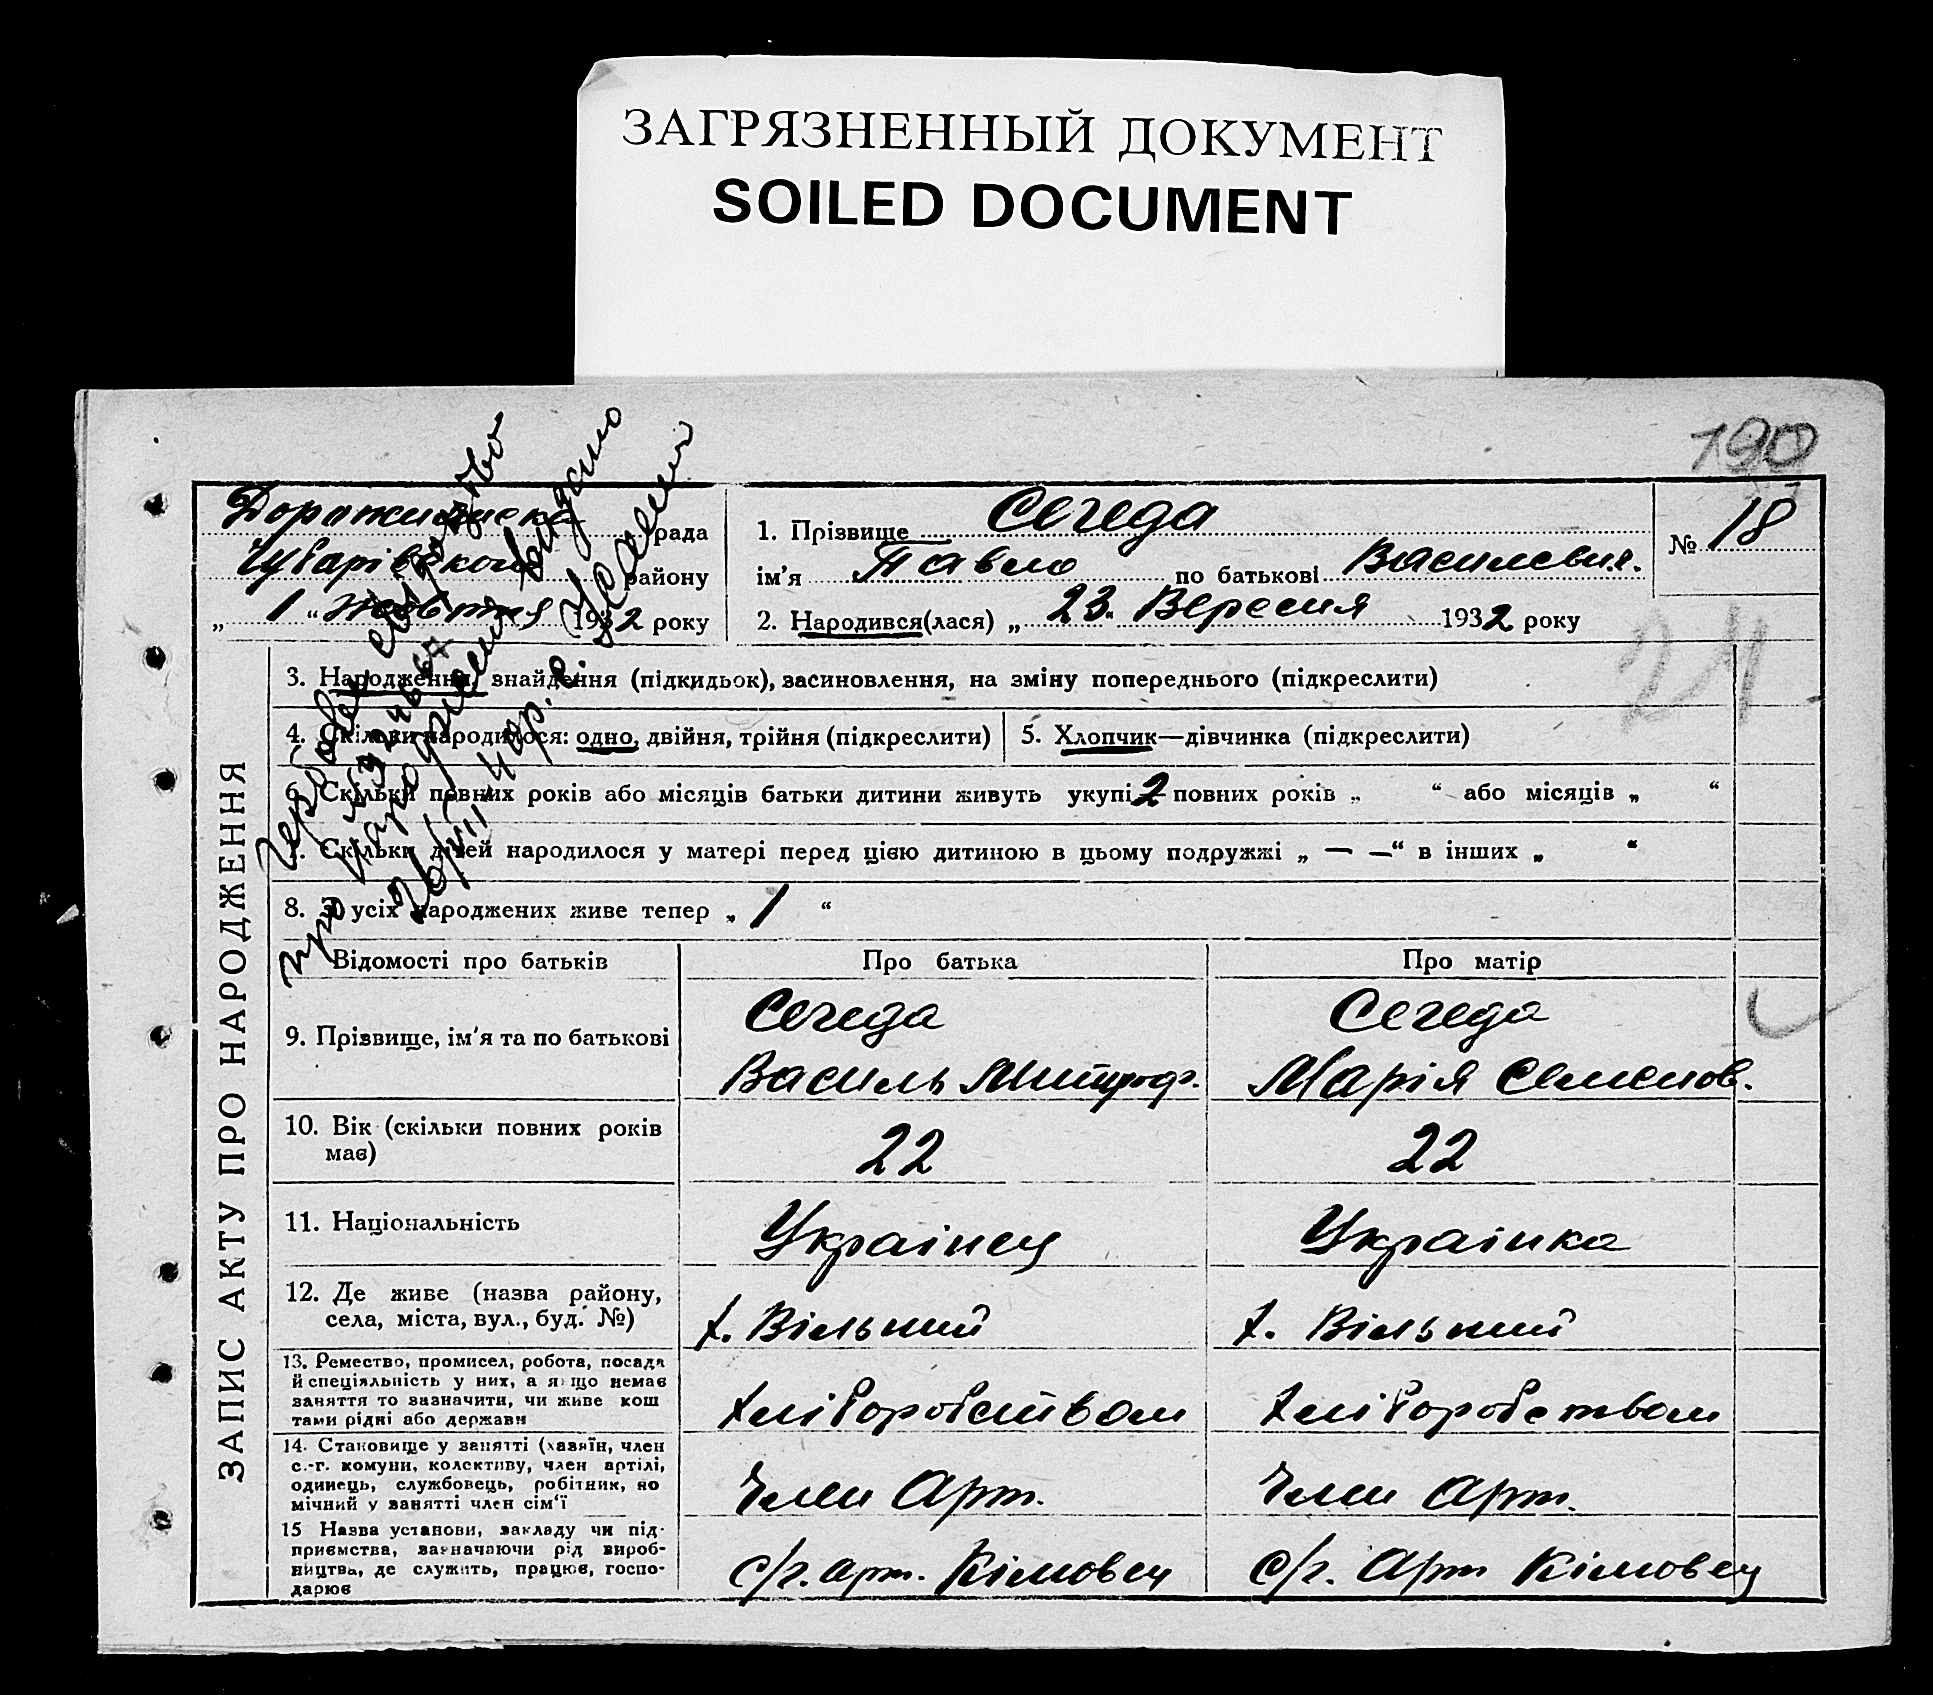 ЗАГРЯЗНЕННЫЙ ДОКУМЕНТ
SOILED DOCUMENT
190
рада
Чубарівского району
„ 1 “ жовтня 1932 року
1. Прізвище Сегеда
ім'я Павло по батькові Василевич.
2. Народився(лася) „ 23 “ Вересня 1932 року
№ 18
24
3. Народження, знайдення (підкидьок), засиновлення, на зміну попереднього (підкреслити)
4. Скільки народилося: одно, двійня, трійня (підкреслити)
5. Хлопчик—дівчинка (підкреслити)
6. Скільки повних років або місяців батьки дитини живуть укупі 2 повних років „ “ або місяців „ “
7. Скільки дітей народилося у матері перед цією дитиною в цьому подружжі „ — — “ в інших „ “
8. З усіх народжених живе тепер „ 1 “
Гербове свідоцтво
про народження видано
ЗАПИС АКТУ ПРО НАРОДЖЕННЯ
Відомості про батьків Про батька Про матір
9. Прізвище, ім'я та по батькові
Сегеда
Василь Митроф.
Сегеда
Марія Семенов.
10. Вік (скільки повних років
має)
22
22
11. Національність
Українец
Українка
12. Де живе (назва району,
села, міста, вул., буд. №)
х. Вільний
х. Вільний
13. Ремество, промисел, робота, посада
й спеціяльність у них, а якщо немає
заняття то зазначити, чи живе кош
тами рідні або держави
хліборобством
хліборобством
14. Становище у занятті (хазяїн, член
с.-г. комуни, колективу, член артілі,
одинець, службовець, робітник, по
мічний у занятті член сім'ї
Член Арт.
Член Арт.
15 Назва установи, закладу чи під-
приємства, зазначаючи рід вироб-
ництва, де служить, працює, госпо-
дарює
с/г. арт. Кімовец
с/г. Арт Кімовец